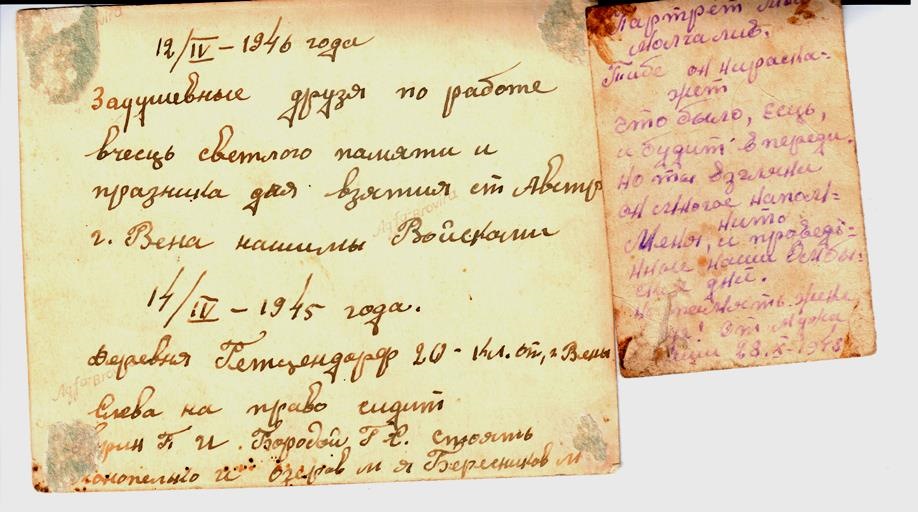 12/IV – 1946 года
Задушевные друзя по работе
вчесць светлого памяти и
празника дня взятия ст Австр
г. Вена нашимы Войсками
14/IV – 1945 года.
Деревня Гетцендорф 20 - кл. от, г Вены
Слева на право сидит
П. И. Бородой Г. Е. стоять
и Озеров М Я Бересников М
Портрет
молчалив.
Тибе он нираска-
жет
Что было, есць,
и будит впереди.
но ты взгляни
он многое напом-
нито
Меня, и проведъ-
нные наши
дни.
жене
от мужа
28.X-1948